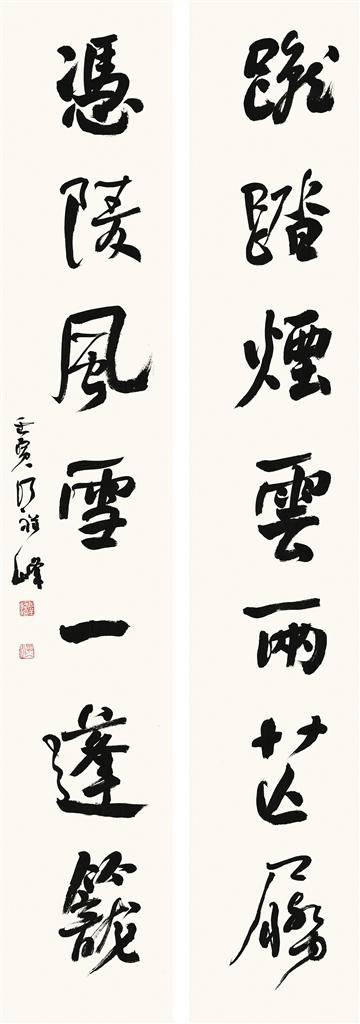 蹴踏煙雲兩芒屩
憑陵風雪一蓬籠
壬寅 祥峰